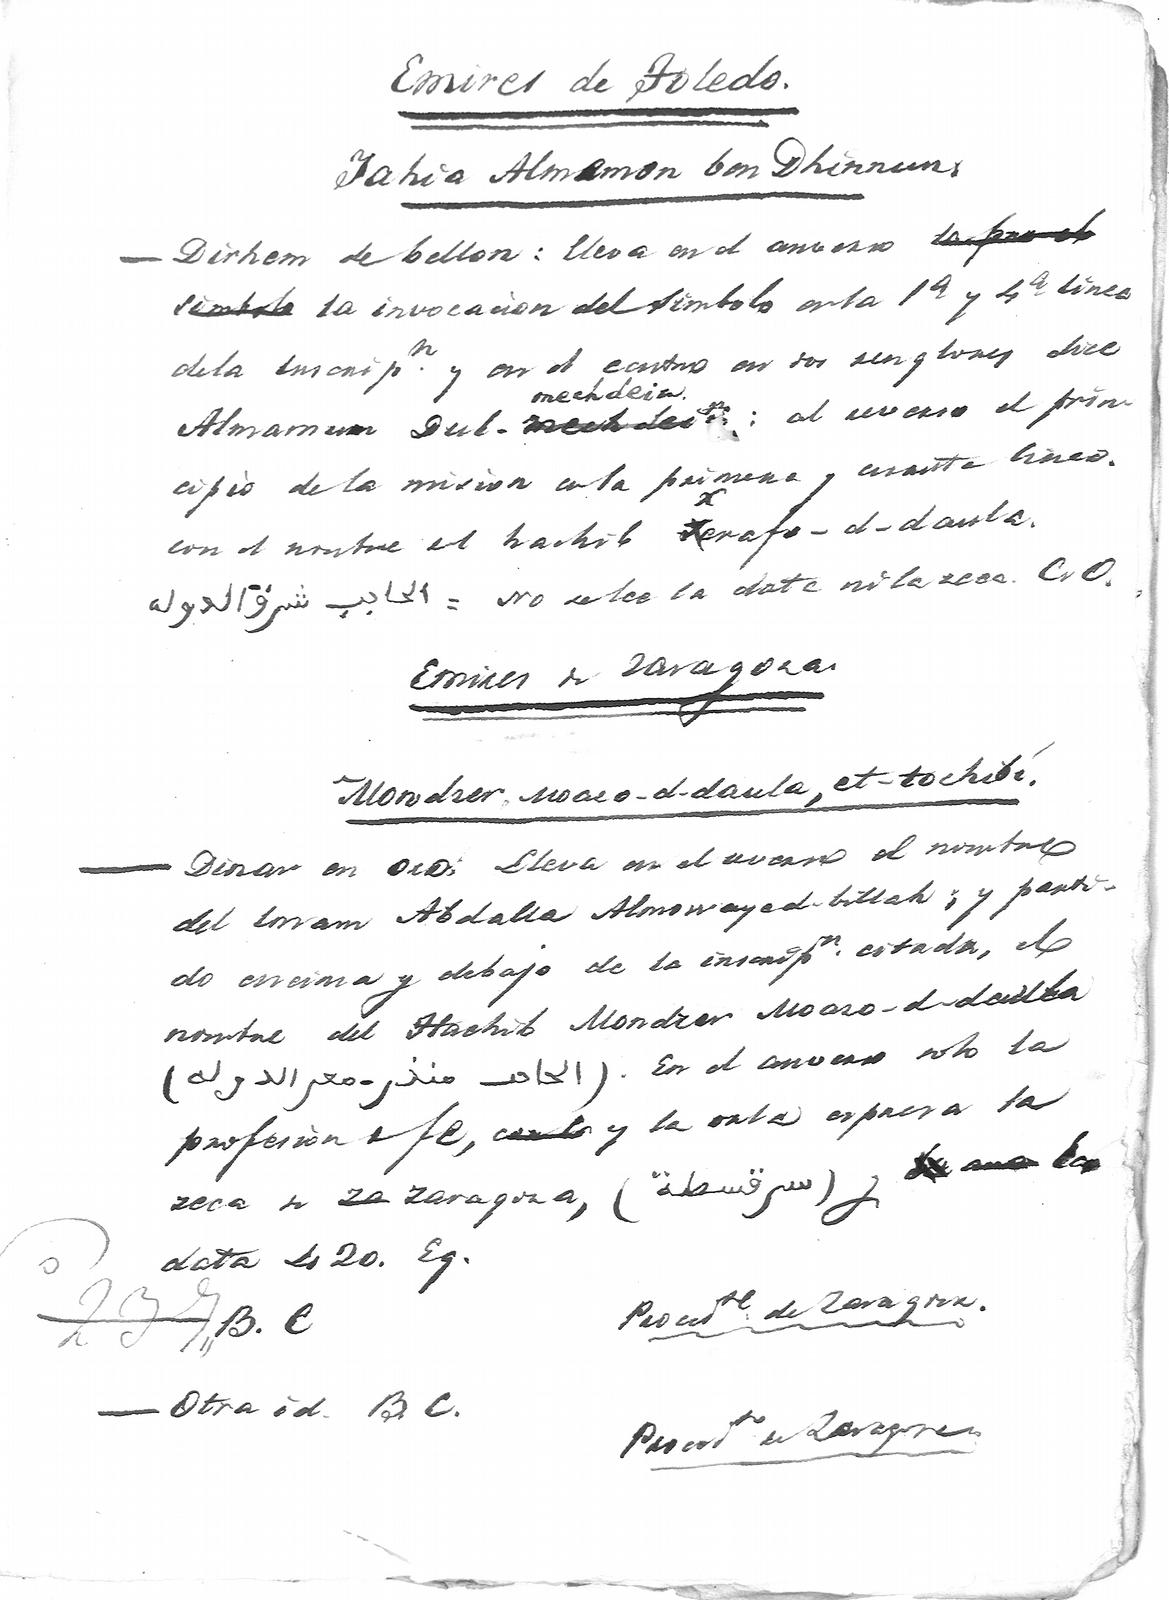 Emires de Toledo.
Jahia Almamon ben Dhinnun.
— Dirhem de bellon: lleva en el anverso la pro el
simbolo la invocacion del simbolo en la 1ª y 4ª linea
de la inscrip.n y en el centro en dos renglones dice
mechdein.
Almamum Dul- : al reverso el prin-
cipio de la mision en la primera y cuarta linea.
con el nombre el hachib xerafo-d-daula.
الحاجب شرف الدولة = No se lee la data ni la zeca. C. O.
Emires de Zaragoza.
Mondzer Moazo-d-daula, et-tochibí.
— Dinar en oro: Lleva en el reverso el nombre
del Imam Abdalla Almowayed-billah; y parti-
do encima y debajo de la inscrip.n citada, el
nombre del Hachib Mondzer Moazo-d-daula
(الحاجب منذر معز الدولة). En el anverso solo la
profesion de fe, con la y la orla expresa la
zeca de Za Zaragoza, (سرقسطة) y
data 420. Eg.
237 B. C
Proced.te de Zaragoza.
— Otra id. B. C.
Proced.te de Zaragoza